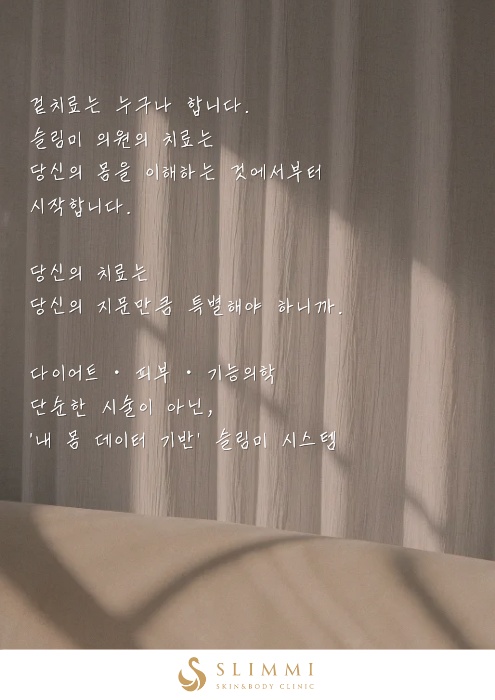 겉치료는 누구나 합니다.
슬림미 의원의 치료는
당신의 몸을 이해하는 것에서부터
시작합니다.
당신의 치료는
당신의 지문만큼 특별해야 하니까.
다이어트 • 피부 • 기능의학
단순한 시술이 아닌,
'내 몸 데이터 기반' 슬림미 시스템
SLIMMI
SKIN&BODY CLINIC